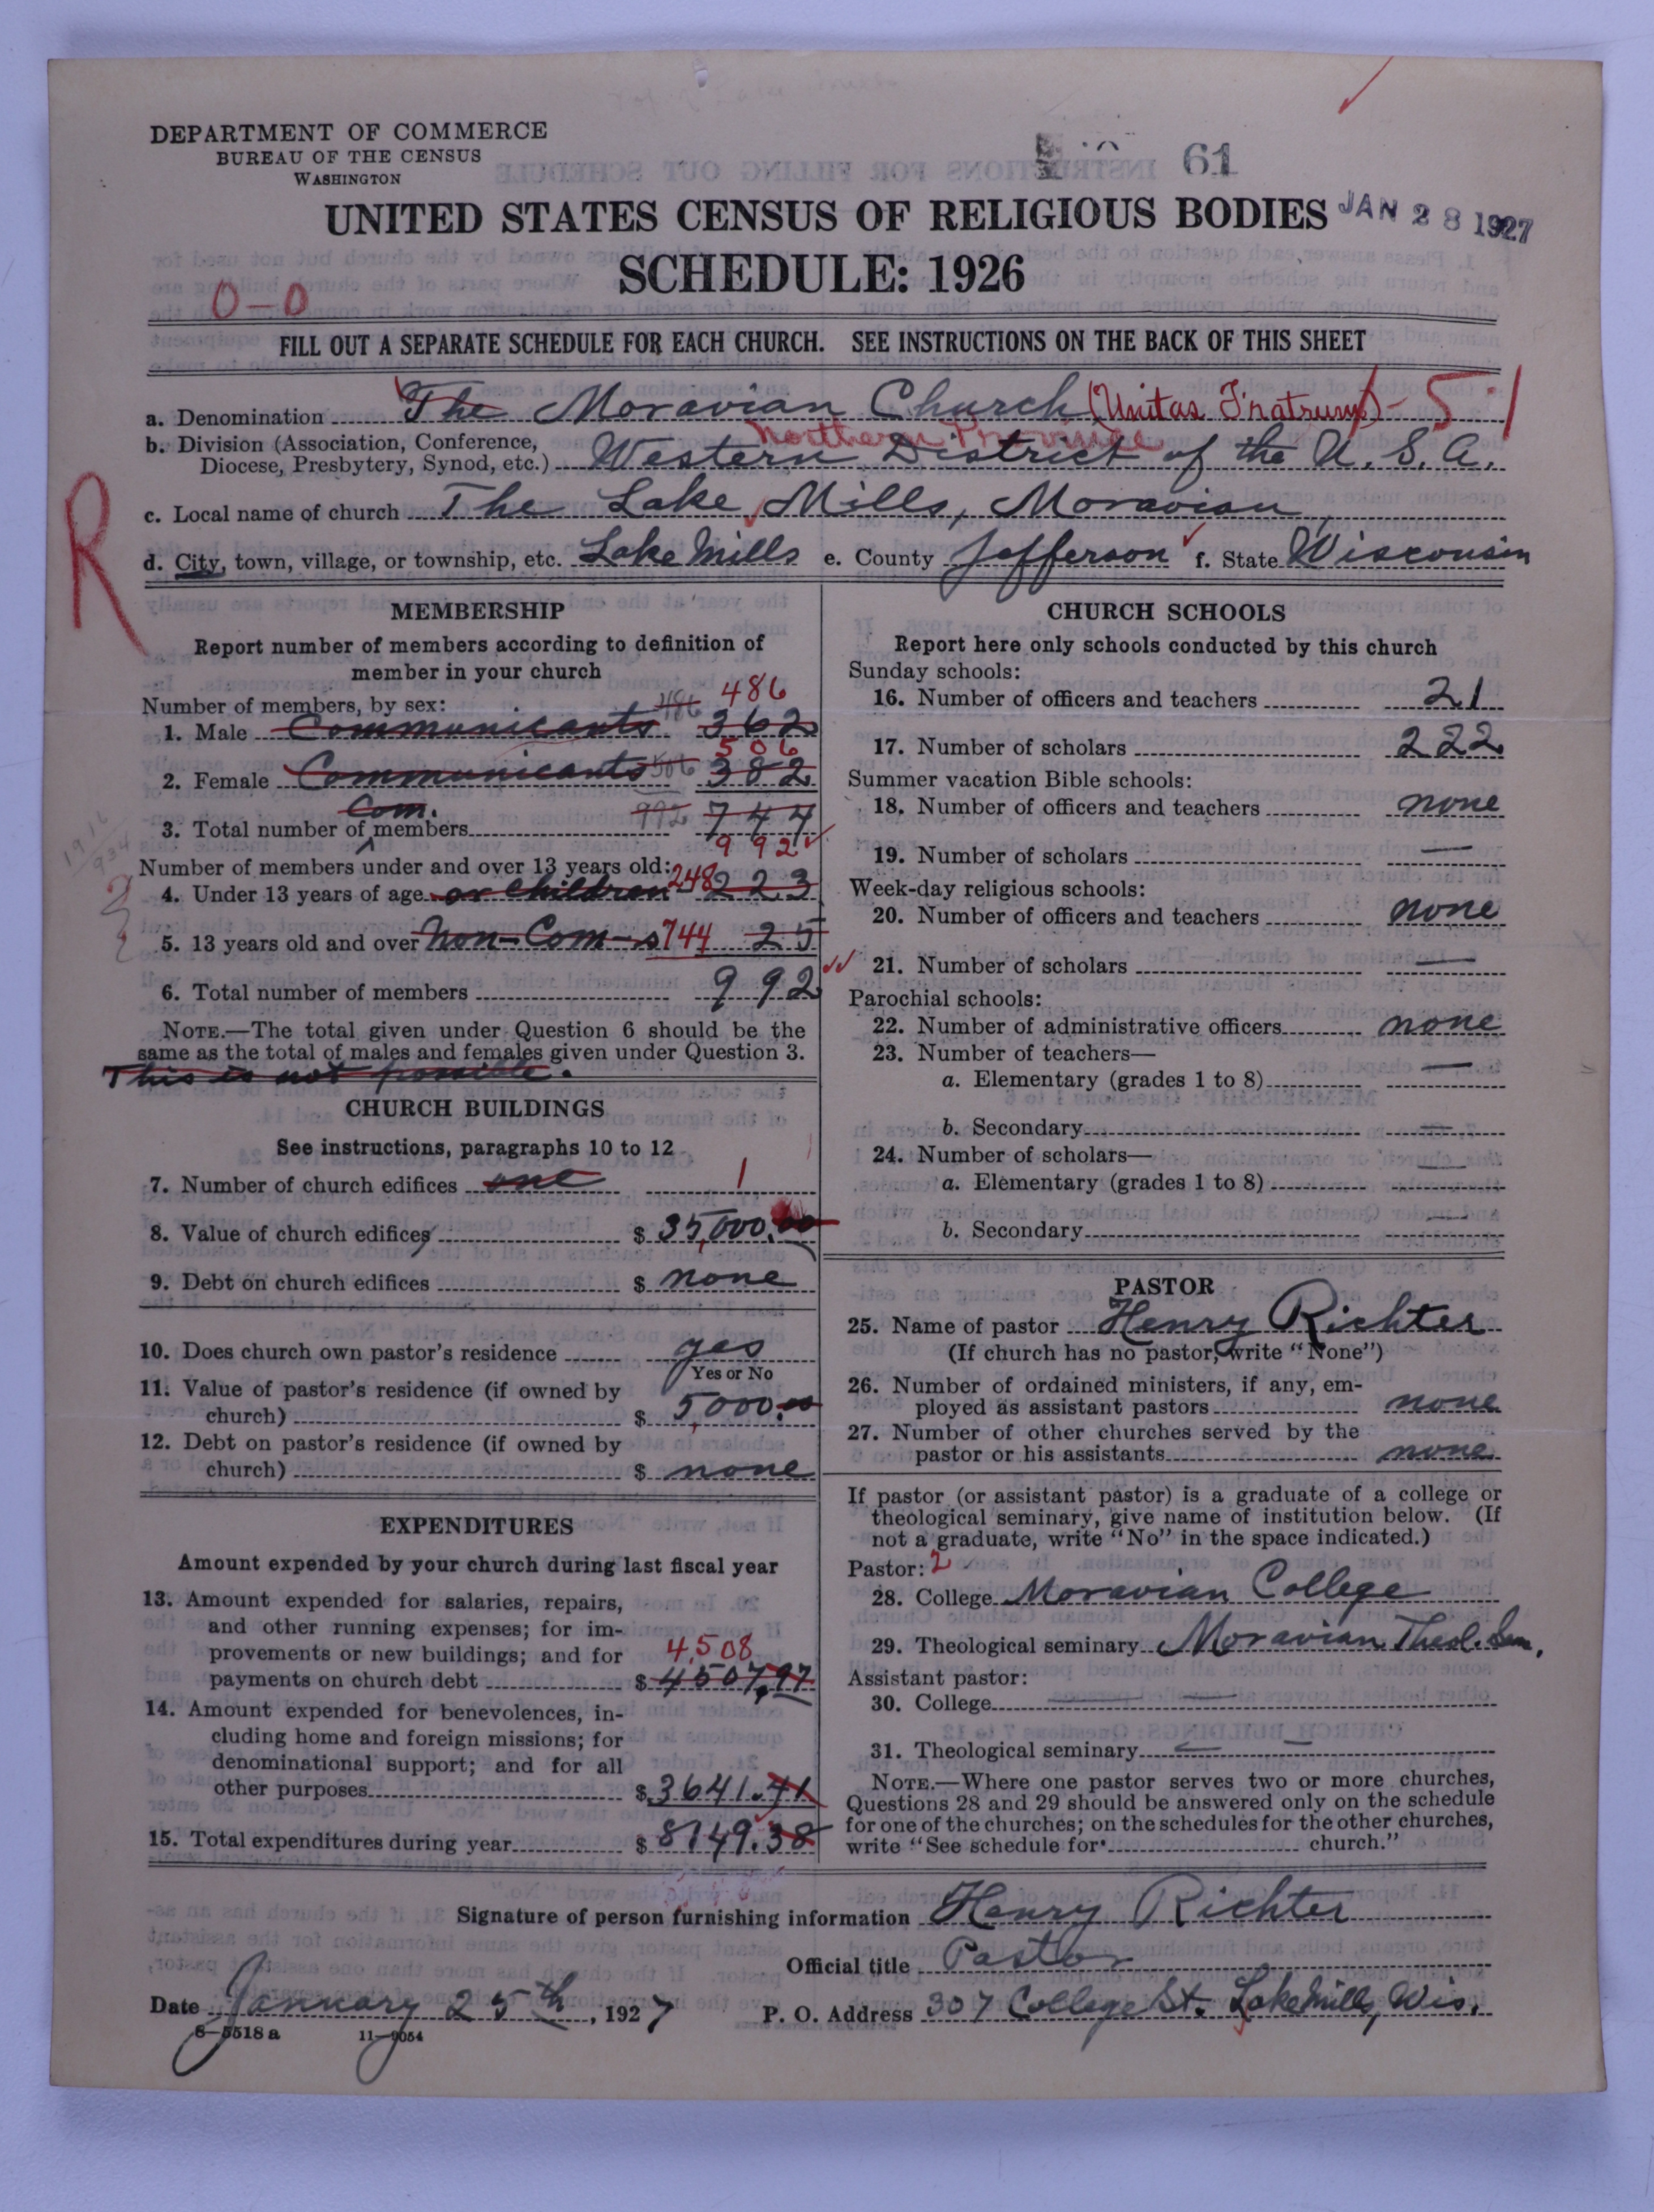 DEPARTMENT OF COMMERCE
BUREAU OF THE CENSUS
WASHINGTON
61
UNITED STATES CENSUS OF RELIGIOUS BODIES
JAN 28 1927
SCHEDULE: 1926
0-0
FILL OUT A SEPARATE SCHEDULE FOR EACH CHURCH. SEE INSTRUCTIONS ON THE BACK OF THIS SHEET
a. Denomination The Moravian Church (Unitas Fratrum) - 5-1
Northern Province
b. Division (Association, Conference, Diocese, Presbytery, Synod, etc.) Western District of the U. S. A.
R
c. Local name of church The Lake Mills, Moravian
d. City, town, village, or township, etc. Lake Mills e. County Jefferson f. State Wisconsin
MEMBERSHIP
Report number of members according to definition of
member in your church
Number of members, by sex: 486 486
1. Male Communicants 362
506
2. Female Communicants 506 382
Com.
3. Total number of members 992 744
992
1916
934
Number of members under and over 13 years old:
4. Under 13 years of age or children 248 223
5. 13 years old and over Non-Com-s 744 25
6. Total number of members 992
NOTE.—The total given under Question 6 should be the
same as the total of males and females given under Question 3.
This is not possible.
CHURCH BUILDINGS
See instructions, paragraphs 10 to 12
7. Number of church edifices one 1
8. Value of church edifices $ 35,000.00
9. Debt on church edifices $ none
10. Does church own pastor's residence yes
Yes or No
11. Value of pastor's residence (if owned by
church) $ 5,000.00
12. Debt on pastor's residence (if owned by
church) $ none
EXPENDITURES
Amount expended by your church during last fiscal year
13. Amount expended for salaries, repairs,
and other running expenses; for im-
provements or new buildings; and for 4,508
payments on church debt $ 4507.97
14. Amount expended for benevolences, in-
cluding home and foreign missions; for
denominational support; and for all
other purposes $ 3641.41
15. Total expenditures during year $ 8149.38
CHURCH SCHOOLS
Report here only schools conducted by this church
Sunday schools:
16. Number of officers and teachers 21
17. Number of scholars 222
Summer vacation Bible schools:
18. Number of officers and teachers none
19. Number of scholars —
Week-day religious schools:
20. Number of officers and teachers none
21. Number of scholars —
Parochial schools:
22. Number of administrative officers none
23. Number of teachers—
a. Elementary (grades 1 to 8) —
b. Secondary —
24. Number of scholars—
a. Elementary (grades 1 to 8) —
b. Secondary —
PASTOR
25. Name of pastor Henry Richter
(If church has no pastor, write "None")
26. Number of ordained ministers, if any, em-
ployed as assistant pastors none
27. Number of other churches served by the
pastor or his assistants none
If pastor (or assistant pastor) is a graduate of a college or
theological seminary, give name of institution below. (If
not a graduate, write "No" in the space indicated.)
Pastor: 2
28. College Moravian College
29. Theological seminary Moravian Theol. Sem.
Assistant pastor:
30. College — —
31. Theological seminary — —
NOTE.—Where one pastor serves two or more churches,
Questions 28 and 29 should be answered only on the schedule
for one of the churches; on the schedules for the other churches,
write "See schedule for church."
Signature of person furnishing information Henry Richter
Official title Pastor
Date January 25th, 1927 P. O. Address 307 College St. Lake Mills, Wis.
8-5518 a 11-9054